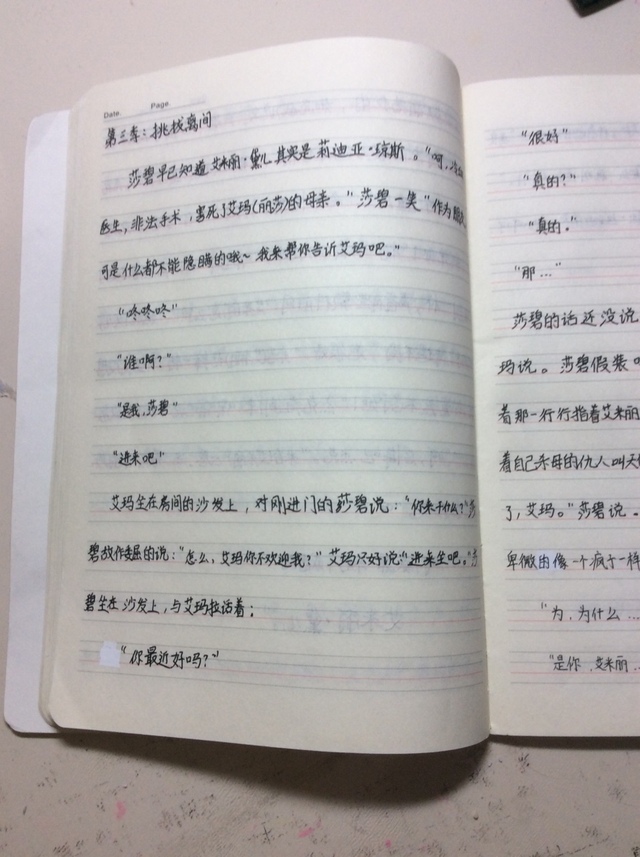 Date. Page.
第三章:挑拨离间
莎碧早已知道艾米丽·黛儿其实是莉迪亚·琼斯。"呵,
医生,非法手术,害死了艾玛(丽莎)的母亲。"莎碧一笑"作为
可是什么都不能隐瞒的哦~我来帮你告诉艾玛吧。"
"咚咚咚"
"谁啊?"
"是我,莎碧"
"进来吧"
艾玛坐在房间的沙发上,对刚进门的莎碧说:"你来干什么?"莎
碧故作委屈的说:"怎么,艾玛你不欢迎我?"艾玛只好说:"进来坐吧。"莎
碧坐在沙发上,与艾玛拉话着:
"你最近好吗?"
"很好"
"真的?"
"真的。"
"那…"
莎碧的话还没说
玛说。莎碧假装
着那一行行指着艾米丽
着自己杀母的仇人叫天使
了,艾玛。"莎碧说。
卑微的像一个疯子一样
"为,为什么…
"是你,艾米丽…